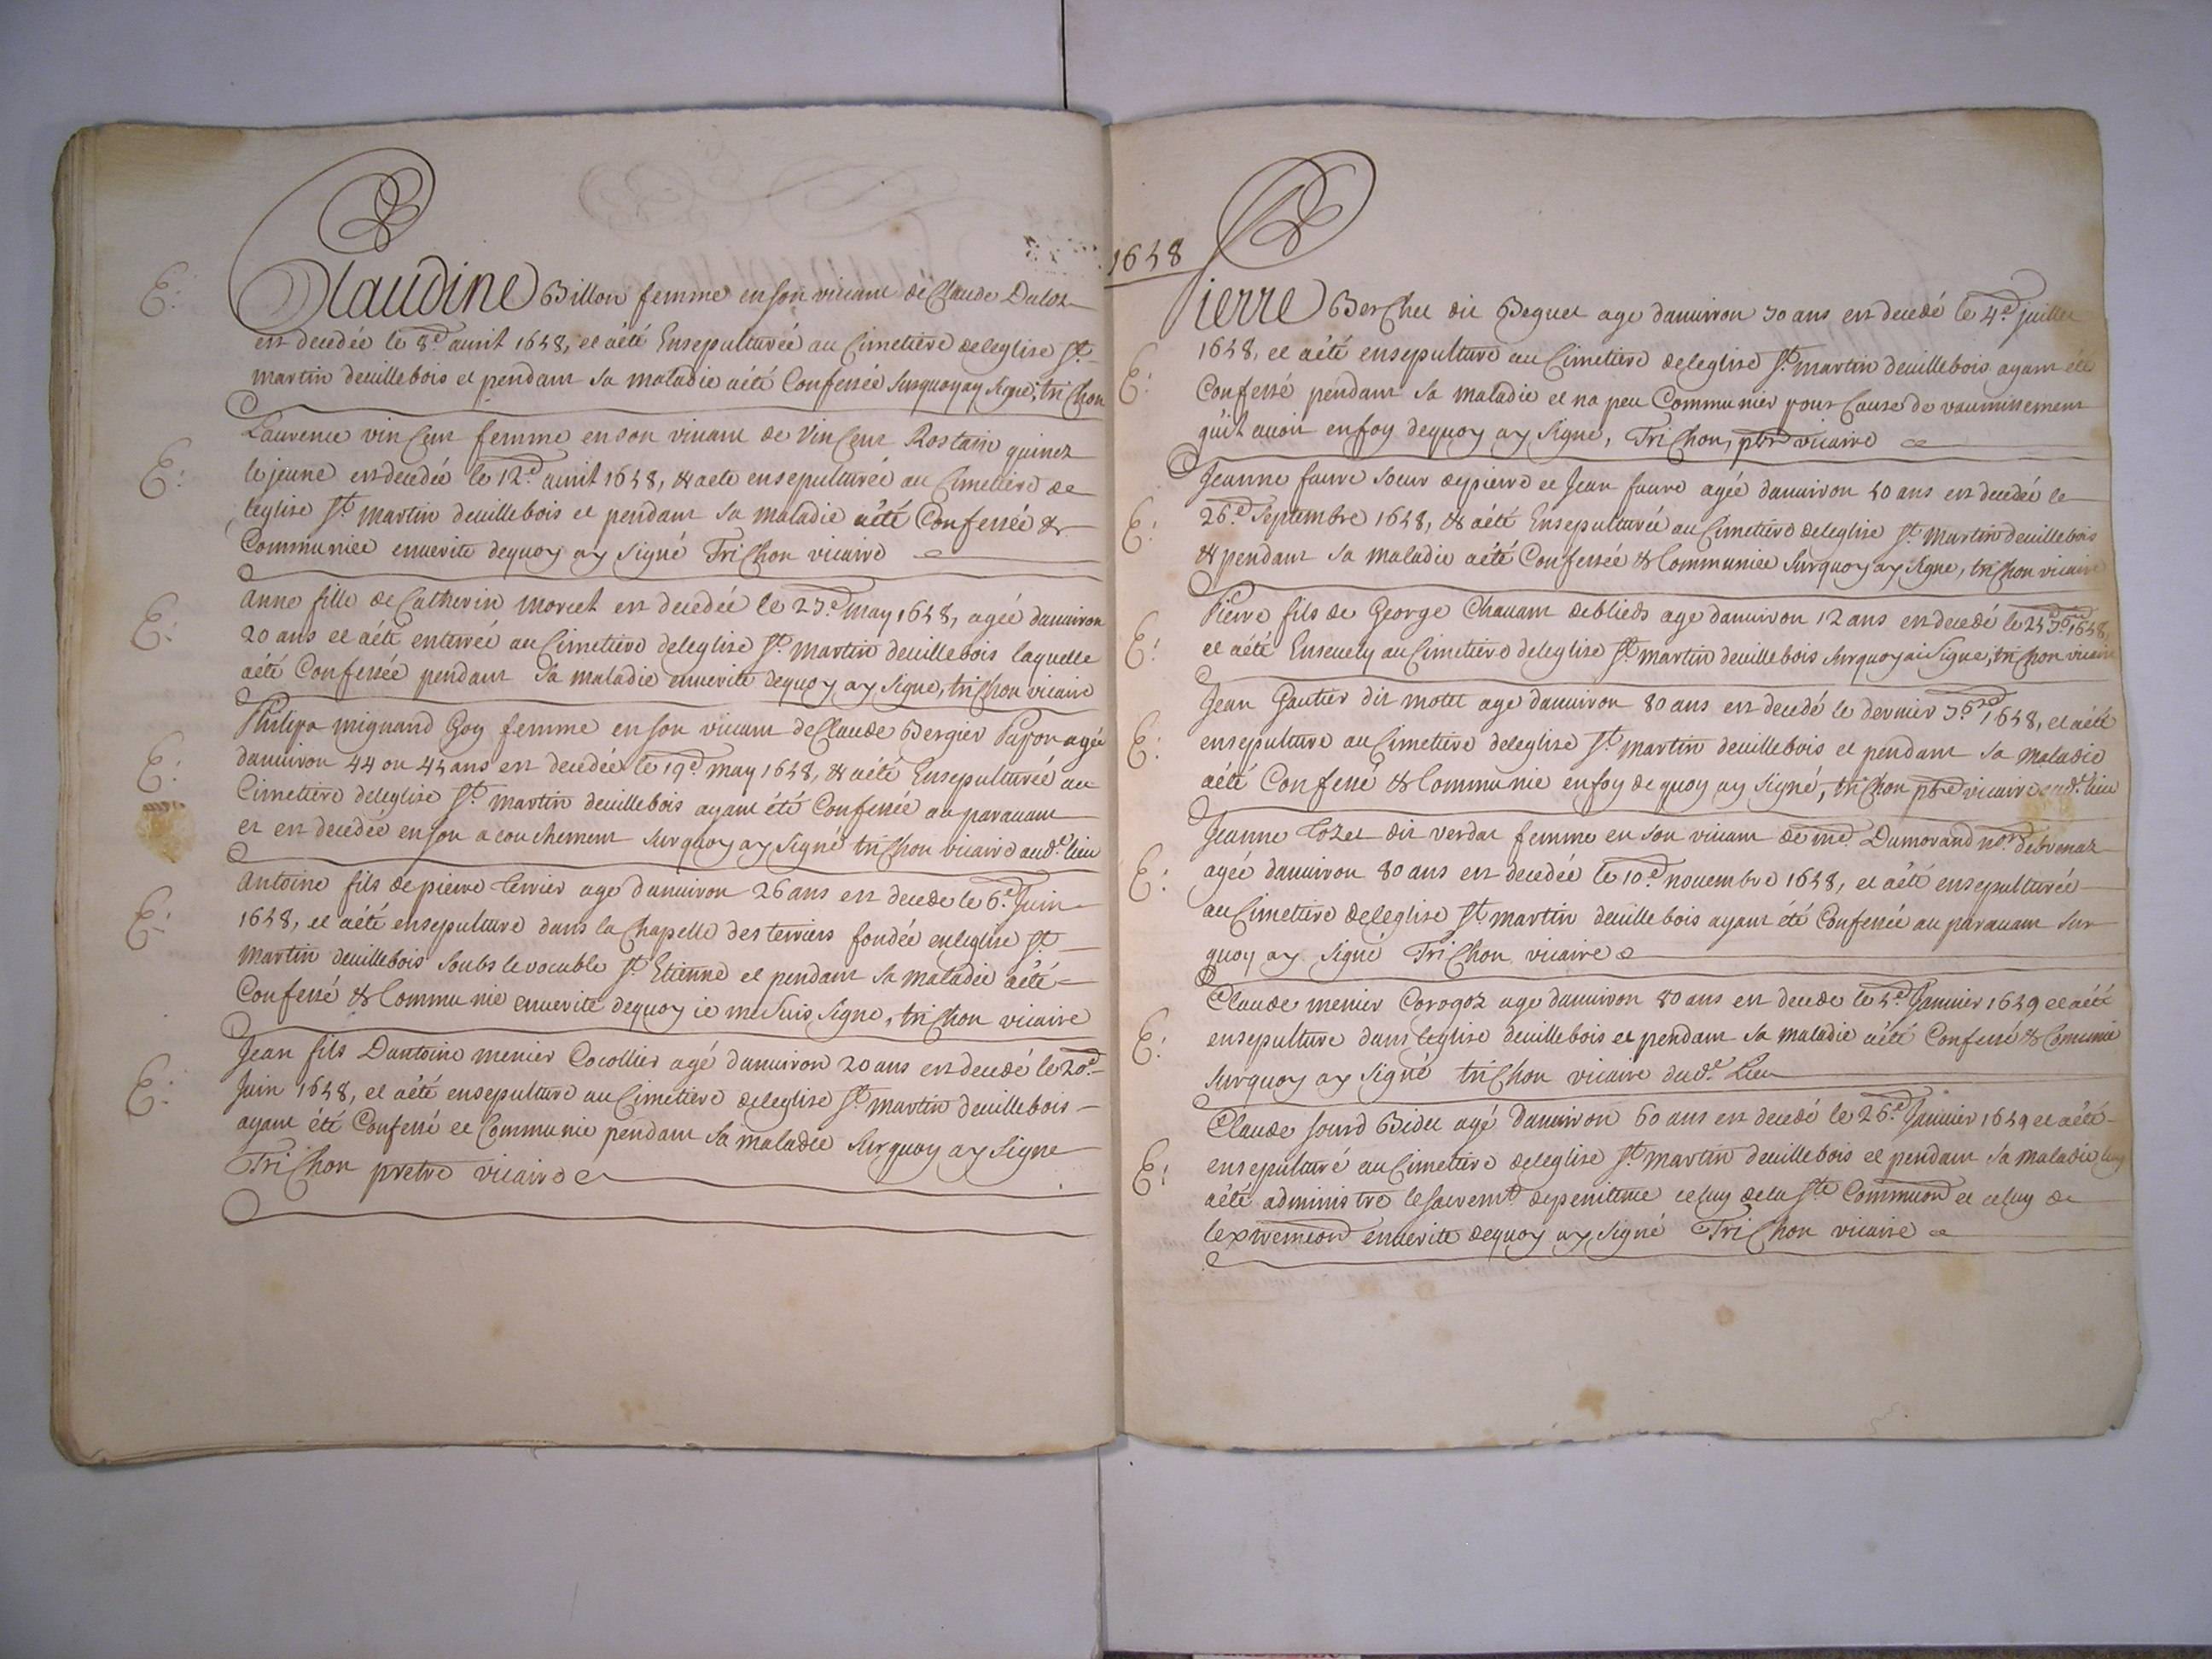 Claudine Billon femme en son vivant de Claude Duloz
est decedée le 8.e avril 1658, et a été Ensepulturée au Cimetiere de leglise St
martin deuillebois et pendant sa maladie a été Confessée surquoy ay signé, trichon
Laurence vincent femme en son vivant de Vincent Rostain quinez
le jeune est decedée le 12.e avril 1658, & a ete ensepulturée au Cimetiere de
leglise St martin deuillebois et pendant sa maladie a été Confessée &
Communiée enverite dequoy ay signé Trichon vicaire
Anne fille de Catherin morcel est decedée le 27.e may 1658, agée danviron
20 ans et a été enterrée au Cimetiere deleglise St martin deuillebois laquelle
a été Confessée pendant sa maladie enverité dequoy ay signe, trichon vicaire
Philipa mignand Goy femme en son vivant de Claude Bergier Papon agée
danviron 44 ou 45 ans est decedée le 19.e may 1658, & a été Ensepulturée au
Cimetiere deleglise St martin deuillebois ayant été Confessée au paravant
et est decedée en son acouchement surquoy ay signé trichon vicaire aud.t lieu
Antoine fils de pierre terrier age danviron 26 ans est decede le 6.e Juin
1658, et a été ensepulture dans la Chapelle des terriers fondée en leglise St
martin deuillebois soubs le vocable St Etienne et pendant sa maladie a été
Confessé & Communie enverite dequoy ie me suis signe, trichon vicaire
Jean fils Dantoine menier Cocollier agé danviron 20 ans est decedé le 20.e
Juin 1658, et a été ensepulture au Cimetiere deleglise St martin deuillebois
ayant été Confessé et Communie pendant sa maladie surquoy ay signe
Trichon pretre vicaire
1658
Pierre Berchet dit Beguet age danviron 70 ans est decedé le 4.e juillet
1658, et a été ensepulture au Cimetiere deleglise St martin deuillebois ayant été
Confessé pendant sa maladie et na peu Communier pour Cause de vaumissement
quil avoit enfoy dequoy ay signe, Trichon, pbre vicaire
Jeanne favre soeur de pierre et Jean favre agée danviron 50 ans est decedée le
26.e Septembre 1658, & a été Ensepulturée au Cimetiere deleglise St martin deuillebois
& pendant sa maladie a été Confessée & Communiee surquoy ay signe, trichon vicaire
Pierre fils de George Chavant deblieds age danviron 12 ans est decedé le 25 7bre 1658,
et a été Ensevely au Cimetiere deleglise St martin deuillebois surquoy ai signe, trichon vicaire
Jean Gautier dit motet age danviron 80 ans est decedé le dernier 7bre 1658, et a été
ensepulture au Cimetiere deleglise St martin deuillebois et pendant sa maladie
a été Confessé & Communie enfoy dequoy ay signé, trichon pbre vicaire aud.t lieu
Jeanne Cozet dit verdat femme en son vivant de me Dumorand nore debrenaz
agée danviron 80 ans est decedée le 10.e novembre 1658, et a été ensepulturée
au Cimetiere deleglise St martin deuillebois ayant été Confessée au paravant sur
quoy ay signé Trichon vicaire
Claude menier Corogoz age danviron 80 ans est decede le 5.e Janvier 1659 et a été
ensepulture dans leglise deuillebois et pendant sa maladie a été Confessé & Comunie
surquoy ay signé trichon vicaire dud.t Lieu
Claude sourd Bidet agé danviron 60 ans est decedé le 26.e Janvier 1659 et a été
ensepulturé au Cimetiere deleglise St martin deuillebois et pendant sa maladie luy
a été administre le sacremt depenitence celuy de la Ste Communon et celuy de
lextremeon enverite dequoy ay signé Trichon vicaire
E:
E:
E:
E:
E:
E:
E:
E:
E:
E:
E:
E:
E: